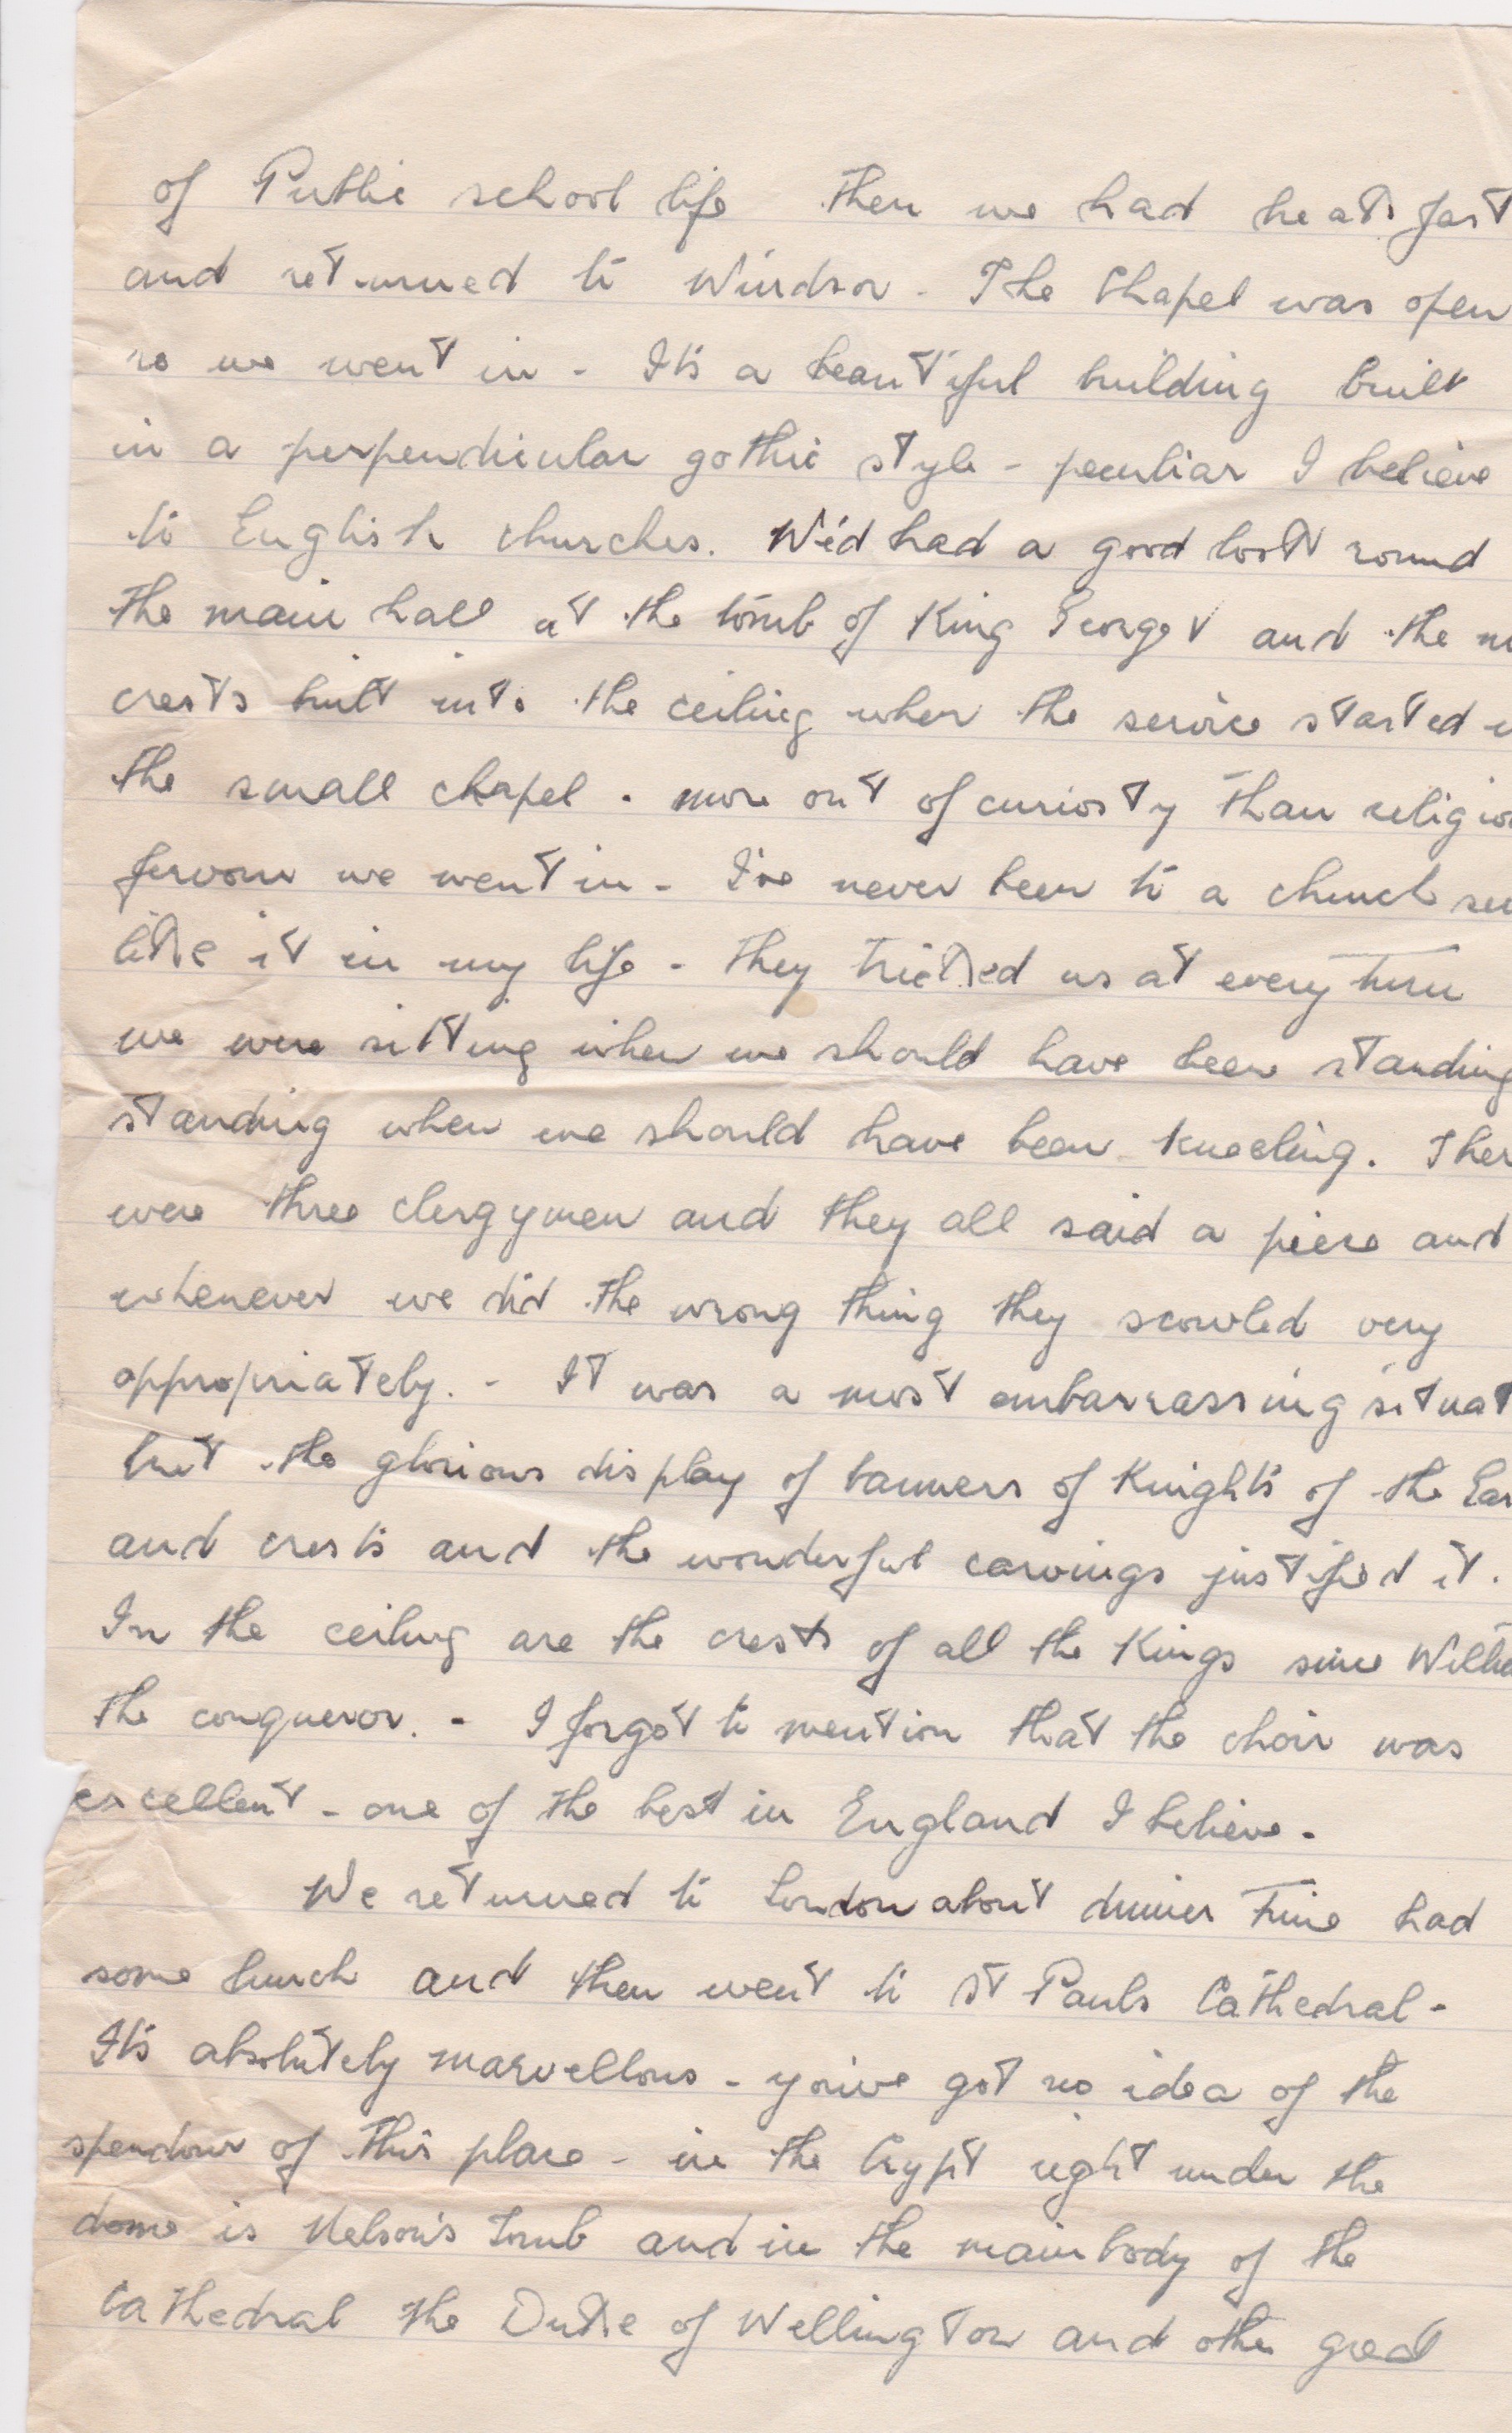 of Public school life then we had breakfast
and returned to Windsor - The Chapel was open
so we went in - It's a beautiful building built
in a perpendicular gothic style - peculiar I believe
to English churches. We'd had a good look round
the main hall at the tomb of King George V and the
crests built into the ceiling when the service started
the small chapel - more out of curiosty than religio
fervour we went in - I've never been to a church
like it in my life - They tricked us at every turn
we were sitting when we should have been standing
standing when we should have been kneeling. Ther
were three clergymen and they all said a piece and
whenever we did the wrong thing they scowled very
appropriately. - It was a most embarrassing situat
but the glorious display of banners of Knights of the
and crests and the wonderful carvings justified it.
In the ceiling are the crests of all the Kings since Willia
the conqueror. - I forgot to mention that the choir was
excellent - one of the best in England I believe -
We returned to London about dinner time had
some lunch and then went to St Pauls Cathedral -
It's absolutely marvellous - you've got no idea of the
spendour of this place - in the Crypt right under the
dome is Nelson's tomb and in the main body of the
Cathedral the Duke of Wellington and other great